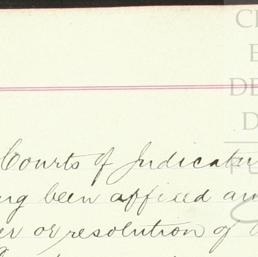 Courts of Judicatu
ng been affixed an
er or resolution of